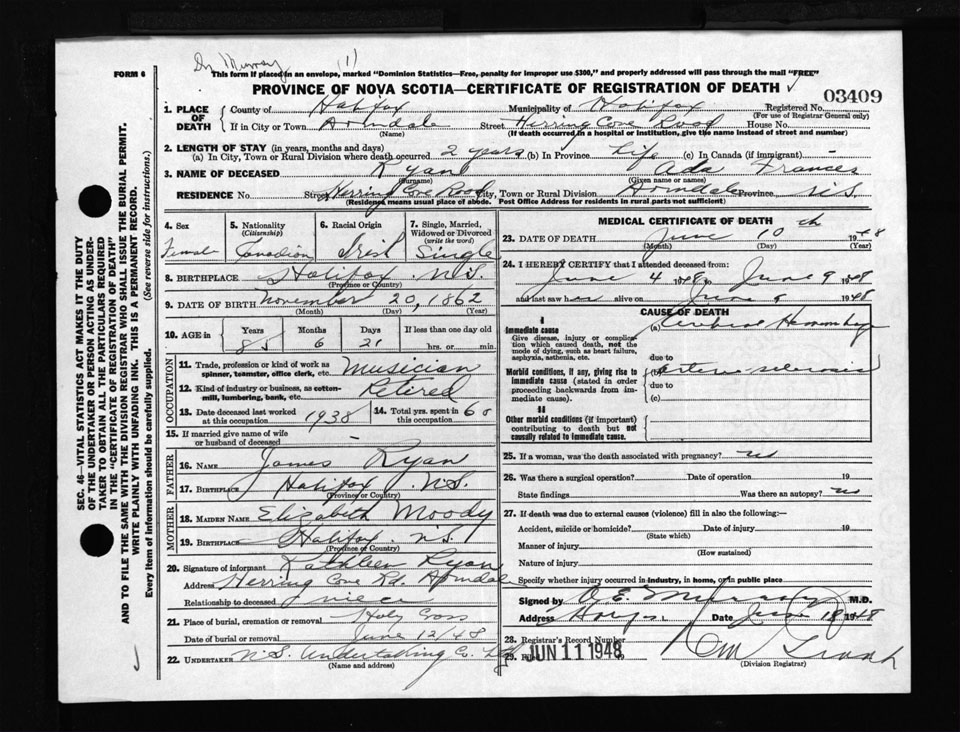 Dr Murray (1)
FORM 6
This form if placed in an envelope, marked "Dominion Statistics—Free, penalty for improper use $300," and properly addressed will pass through the mail "FREE"
PROVINCE OF NOVA SCOTIA—CERTIFICATE OF REGISTRATION OF DEATH
03409
1. PLACE OF DEATH
County of Halifax Municipality of Halifax Registered No.
(For use of Registrar General only)
If in City or Town Armdale Street Herring Cove Road House No.
(Name) (If death occurred in a hospital or institution, give the name instead of street and number)
2. LENGTH OF STAY (in years, months and days)
(a) In City, Town or Rural Division where death occurred 2 years (b) In Province Life (c) In Canada (if immigrant) -
3. NAME OF DECEASED Ryan Ada Frances
(Surname) (Given name or names)
RESIDENCE No. Street Herring Cove Road City, Town or Rural Division Armdale Province N.S.
(Residence means usual place of abode. Post Office Address for residents in rural parts not sufficient)
4. Sex
Female
5. Nationality
(Citizenship)
Canadian
6. Racial Origin
Irish
7. Single, Married, Widowed or Divorced
(write the word)
Single
8. BIRTHPLACE Halifax N.S.
(Province or Country)
9. DATE OF BIRTH November 20, 1862
(Month) (Day) (Year)
10. AGE in Years Months Days If less than one day old
85 6 21 hrs. or min.
OCCUPATION
11. Trade, profession or kind of work as spinner, teamster, office clerk, etc. Musician
12. Kind of industry or business, as cotton-mill, lumbering, bank, etc. Retired
13. Date deceased last worked at this occupation 1938
14. Total yrs. spent in this occupation 60
15. If married give name of wife or husband of deceased -
FATHER
16. NAME James Ryan
17. BIRTHPLACE Halifax N.S.
(Province or Country)
MOTHER
18. MAIDEN NAME Elizabeth Moody
19. BIRTHPLACE Halifax N.S.
(Province or Country)
20. Signature of informant Kathleen Ryan
Address Herring Cove Rd. Armdale
Relationship to deceased niece
21. Place of burial, cremation or removal Holy Cross
Date of burial or removal June 12/48
22. UNDERTAKER N.S. Undertaking Co. Ltd
(Name and address)
MEDICAL CERTIFICATE OF DEATH
23. DATE OF DEATH June 10th 1948
(Month) (Day) (Year)
24. I HEREBY CERTIFY that I attended deceased from:
June 4 1948 to June 9 1948
and last saw her alive on June 1948
CAUSE OF DEATH
I
Immediate cause
Give disease, injury or complication which caused death, not the mode of dying, such as heart failure, asphyxia, asthenia, etc.
(a) Cerebral Hemorrhage
due to
Morbid conditions, if any, giving rise to immediate cause (stated in order proceeding backwards from immediate cause).
(b) arterio sclerosis
due to
(c)
II
Other morbid conditions (if important) contributing to death but not causally related to immediate cause.
25. If a woman, was the death associated with pregnancy? no
26. Was there a surgical operation? Date of operation 19
State findings Was there an autopsy? no
27. If death was due to external causes (violence) fill in also the following:—
Accident, suicide or homicide? Date of injury 19
(State which)
Manner of injury
(How sustained)
Nature of injury
Specify whether injury occurred in industry, in home, or in public place
Signed by O.E. Murray M.D.
Address Date June 1948
28. Registrar's Record Number
29. JUN 11 1948
(Division Registrar)
SEC. 46—VITAL STATISTICS ACT MAKES IT THE DUTY
OF THE UNDERTAKER OR PERSON ACTING AS UNDER-
TAKER TO OBTAIN ALL THE PARTICULARS REQUIRED
IN THE "CERTIFICATE OF REGISTRATION OF DEATH"
AND TO FILE THE SAME WITH THE DIVISION REGISTRAR WHO SHALL ISSUE THE BURIAL PERMIT.
WRITE PLAINLY WITH UNFADING INK. THIS IS A PERMANENT RECORD.
Every item of information should be carefully supplied. (See reverse side for instructions.)